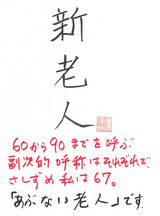 新老人
60から90までを呼ぶ
副次的呼称はそれぞれで
さしずめ私は67。
「あぶない老人」です。